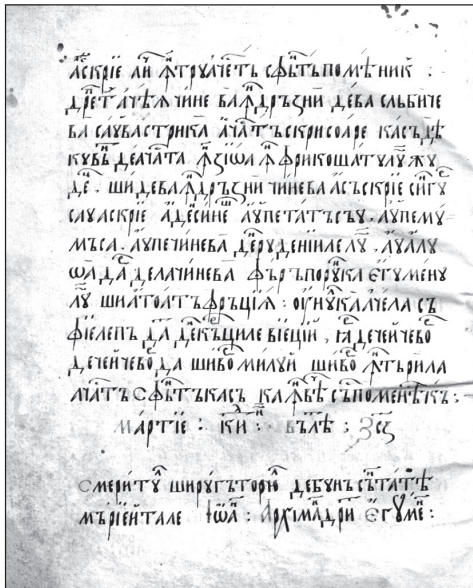 аскріе аи ꙟтрꙋачѣтъ сфѣтъпомѣник :
дрет ачѣѧ чине ва ꙟдръзни дева сльбиче
ва саꙋва стрика ачатъ скрисоаре касъ дѣ
кꙋвѫ деачата ꙟзіѡа ꙟфрикошатꙋлꙋ жꙋ
де . ши дева ꙟдръзни чинева асъ скріе сигꙋ
саꙋа скріе адесине аꙋпе татъсъꙋ . аꙋпе мꙋ
мъса . аꙋпе чинева дерꙋденіиле лꙋ . аꙋ алꙋ
ѡа да делачинева фъръ порꙋка єгꙋменꙋ
лꙋ ши атоатъ фръціѧ : нꙋка ачела съ
фіе лепъда декъциле віеций , ꙗ дечейчево
дечейчево да шиво милꙋй шиво ꙟтърила
ачатъ сфѣтъ касъ каꙟвѣ съ поменѣкъ :
мартіе : ки : вълѣ : ҂зсѕ
смеритꙋ ши рꙋгъторю дебꙋнъ сътатѣ
мъріей тале Іѡа : Архімадри єгꙋме :